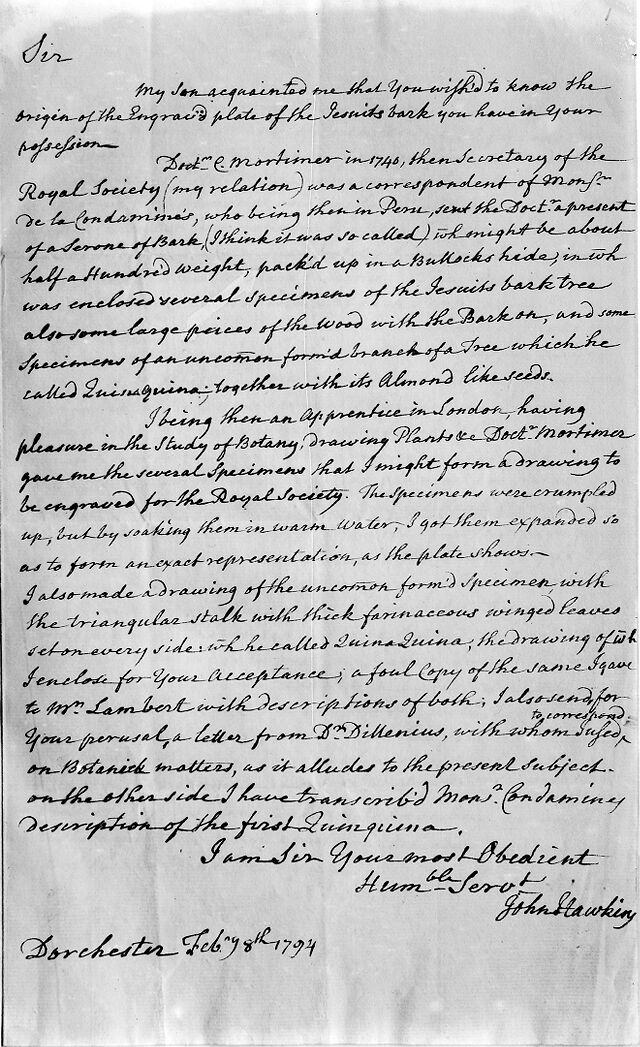 Sir
My Son acquainted me that You wish'd to know the
origin of the Engrav'd plate of the Jesuits bark you have in Your
possession
Doctr. C. Mortimer in 1740, then Secretary of the
Royal Society, (my relation) was a correspondent of Monsr.
de la Condamines, who being then in Peru, sent the Doctr. a present
of a Serone of Bark, (I think it was so called) wh might be about
half a Hundred weight, pack'd up in a Bullocks hide, in wh
was enclosed several specimens of the Jesuits bark tree
also some large peices of the Wood with the Bark on, and some
Specimens of an uncomon form'd branch of a Tree which he
called Quinaquina; together with its Almond like seeds.
I being then an Apprentice in London, having
pleasure in the Study of Botany, drawing Plants &c Doctr. Mortimer
gave me the several Specimens that I might form a drawing to
be engraved for the Royal Society. The Specimens were crumpled
up, but by soaking them in warm water, I got them expanded so
as to form an exact representation, as the plate shows.
I also made a drawing of the uncomon form'd Specimen with
the triangular stalk with thick farinaceous winged leaves
set on every side: wh he called Quina Quina, the drawing of wh
I enclose for Your Acceptance; a foul Copy of the same I gave
to Mr. Lambert with descriptions of both; I also send, for
Your perusal, a letter from Dr. Dillenius, with whom I used, to correspond
on Botanick matters, as it alludes to the present subject.
on the other side I have transcrib'd Monsr. Condamines
description of the first Quinquina.
I am Sir Your most Obedient
Humble Servt
John Hawkins
Dorchester Febry 8th 1794